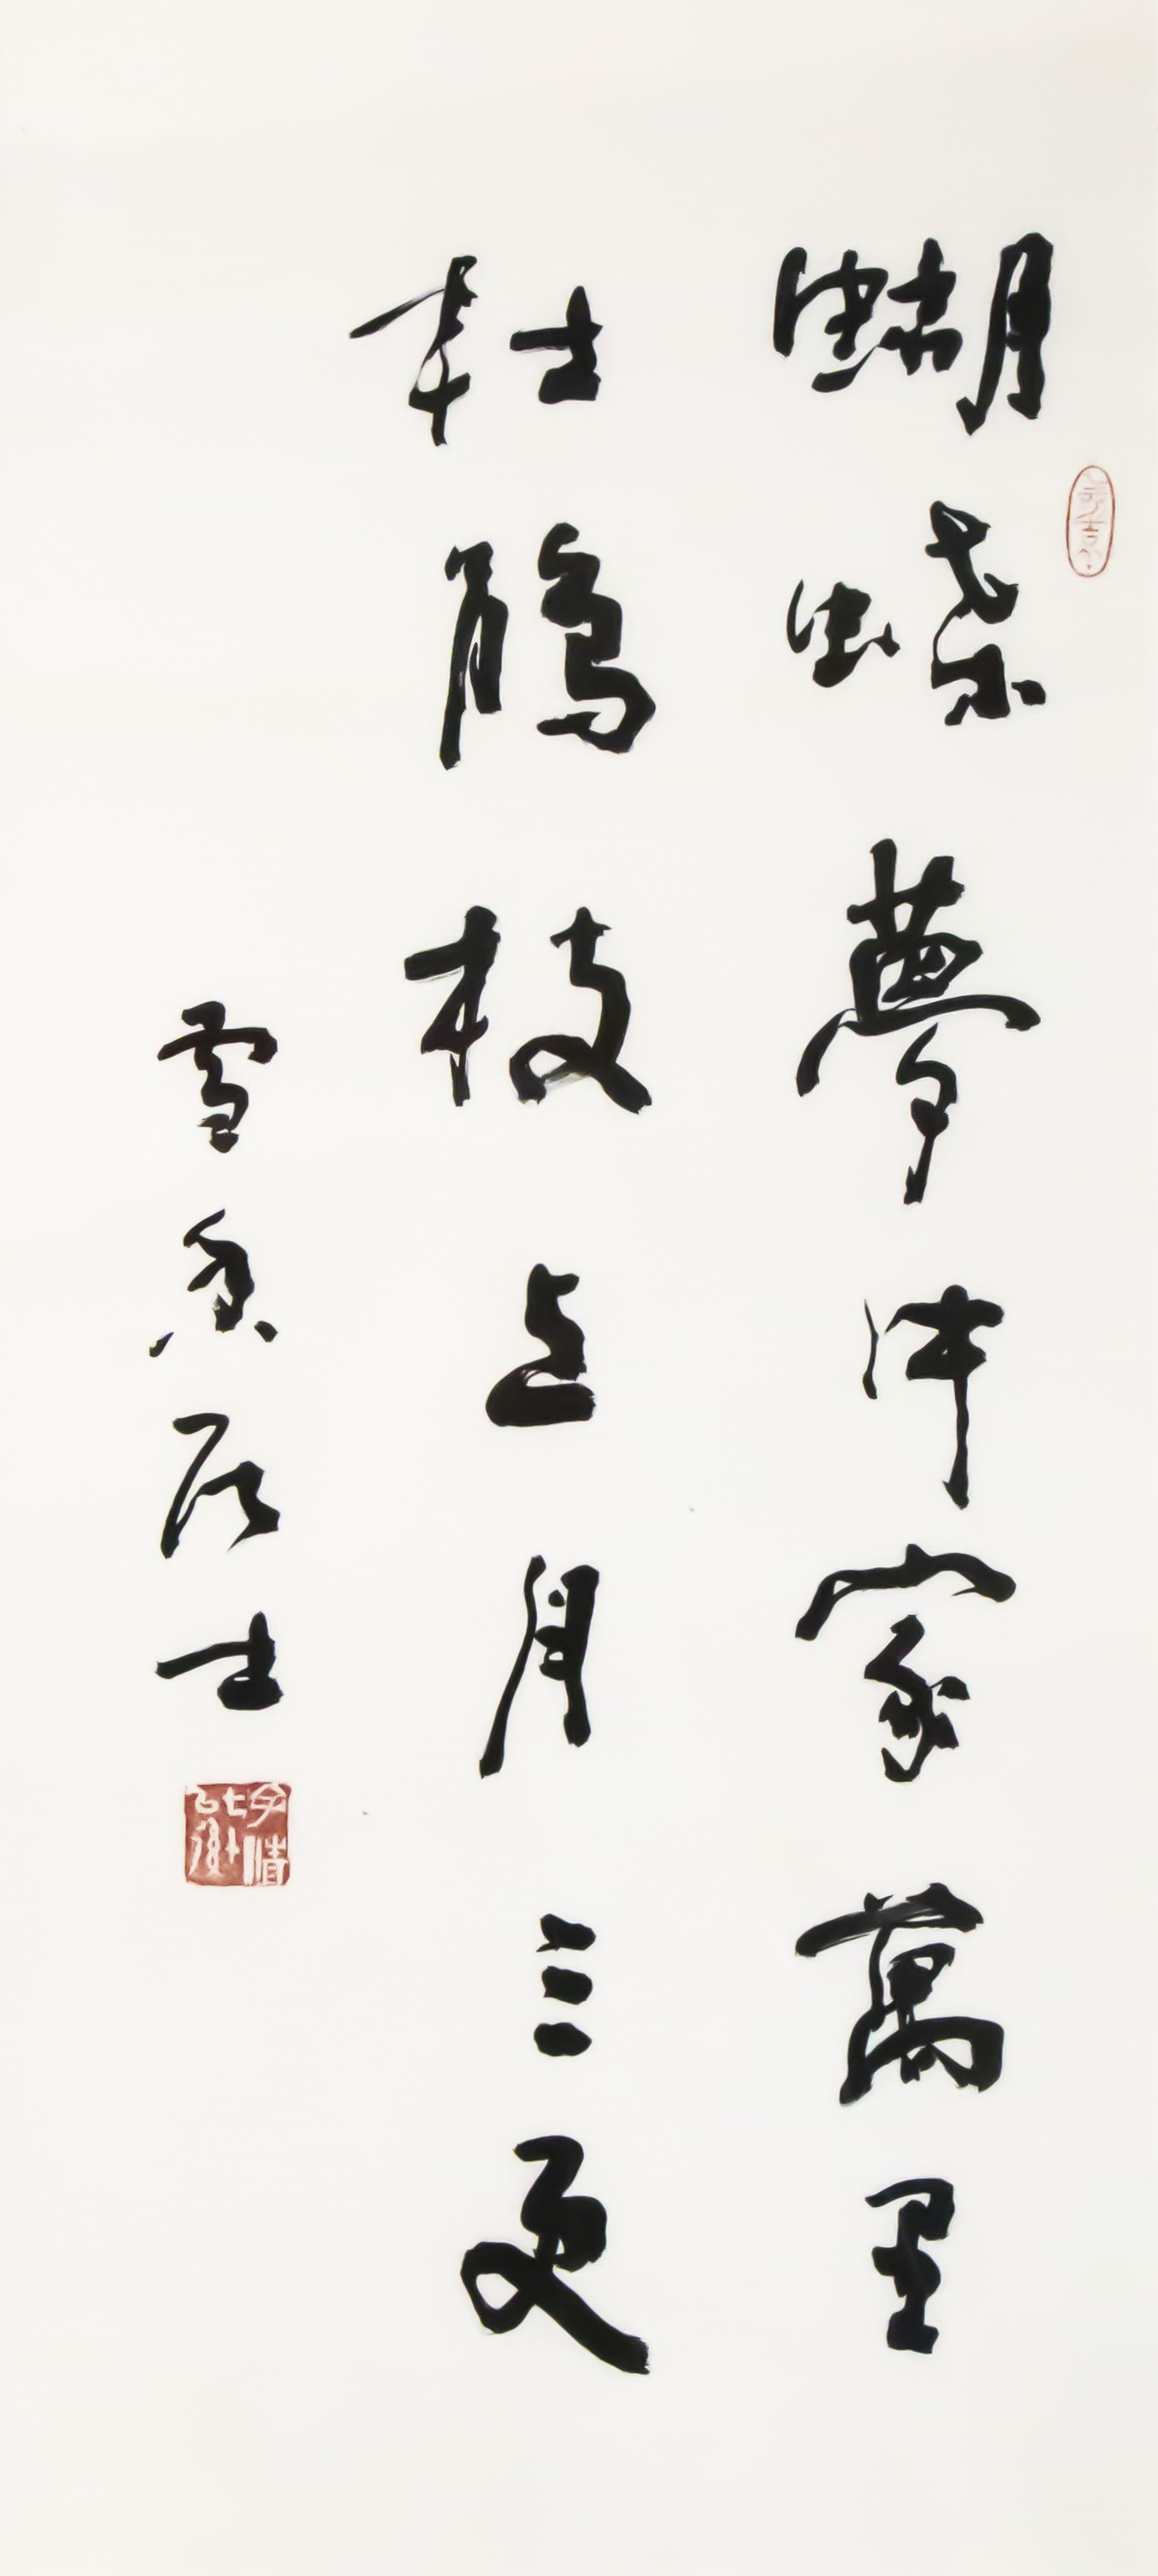 蝴蝶夢中家萬里
杜鵑枝上月三更
雪香居士